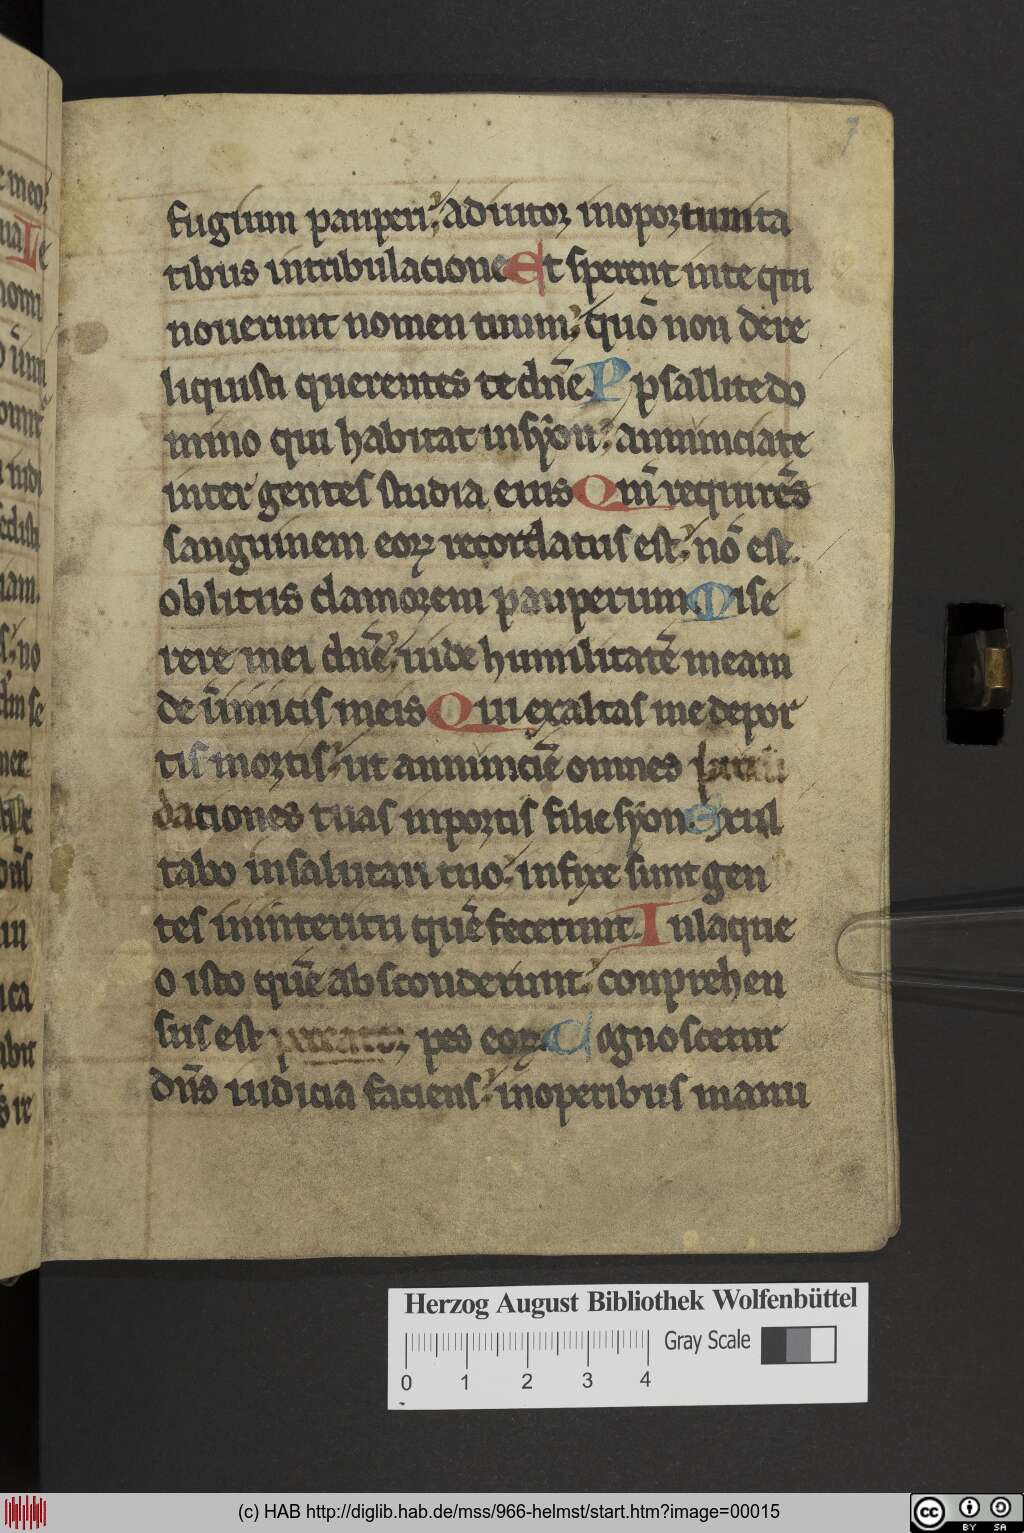 7
fugium pauperi; adiutor inoportunita
tibus intribulacione Et sperent inte qui
nouerunt nomen tuum; quō non dere
liquisti querentes te dn̄e. P psallite do
mino qui habitat insẏon; annunciate
inter gentes studia eius Qm̄ requirēs
sanguinem eoꝝ recordatus est; nō est
oblitus clamorem pauperum Mise
rere mei dn̄e; uide humilitatē meam
de īimicis meis Qui exaltas me depor
tis mortis; ut annunciē omnes lau
daciones tuas inportis filie sẏon Exul
tabo insalutari tuo; infixe sunt gen
tes ininteritu quē fecerunt. Inlaque
o isto quē absconderunt; conprehen
sus est peccator pes eoꝝ. Cognoscetur
dn̄s iudicia faciens; inoperibus manu
e meo;
Le
nomi
indi
sedisti
nam.
no
se
ica
re
Herzog August Bibliothek Wolfenbüttel
Gray Scale
0 1 2 3 4
(c) HAB http://diglib.hab.de/mss/966-helmst/start.htm?image=00015
cc BY SA